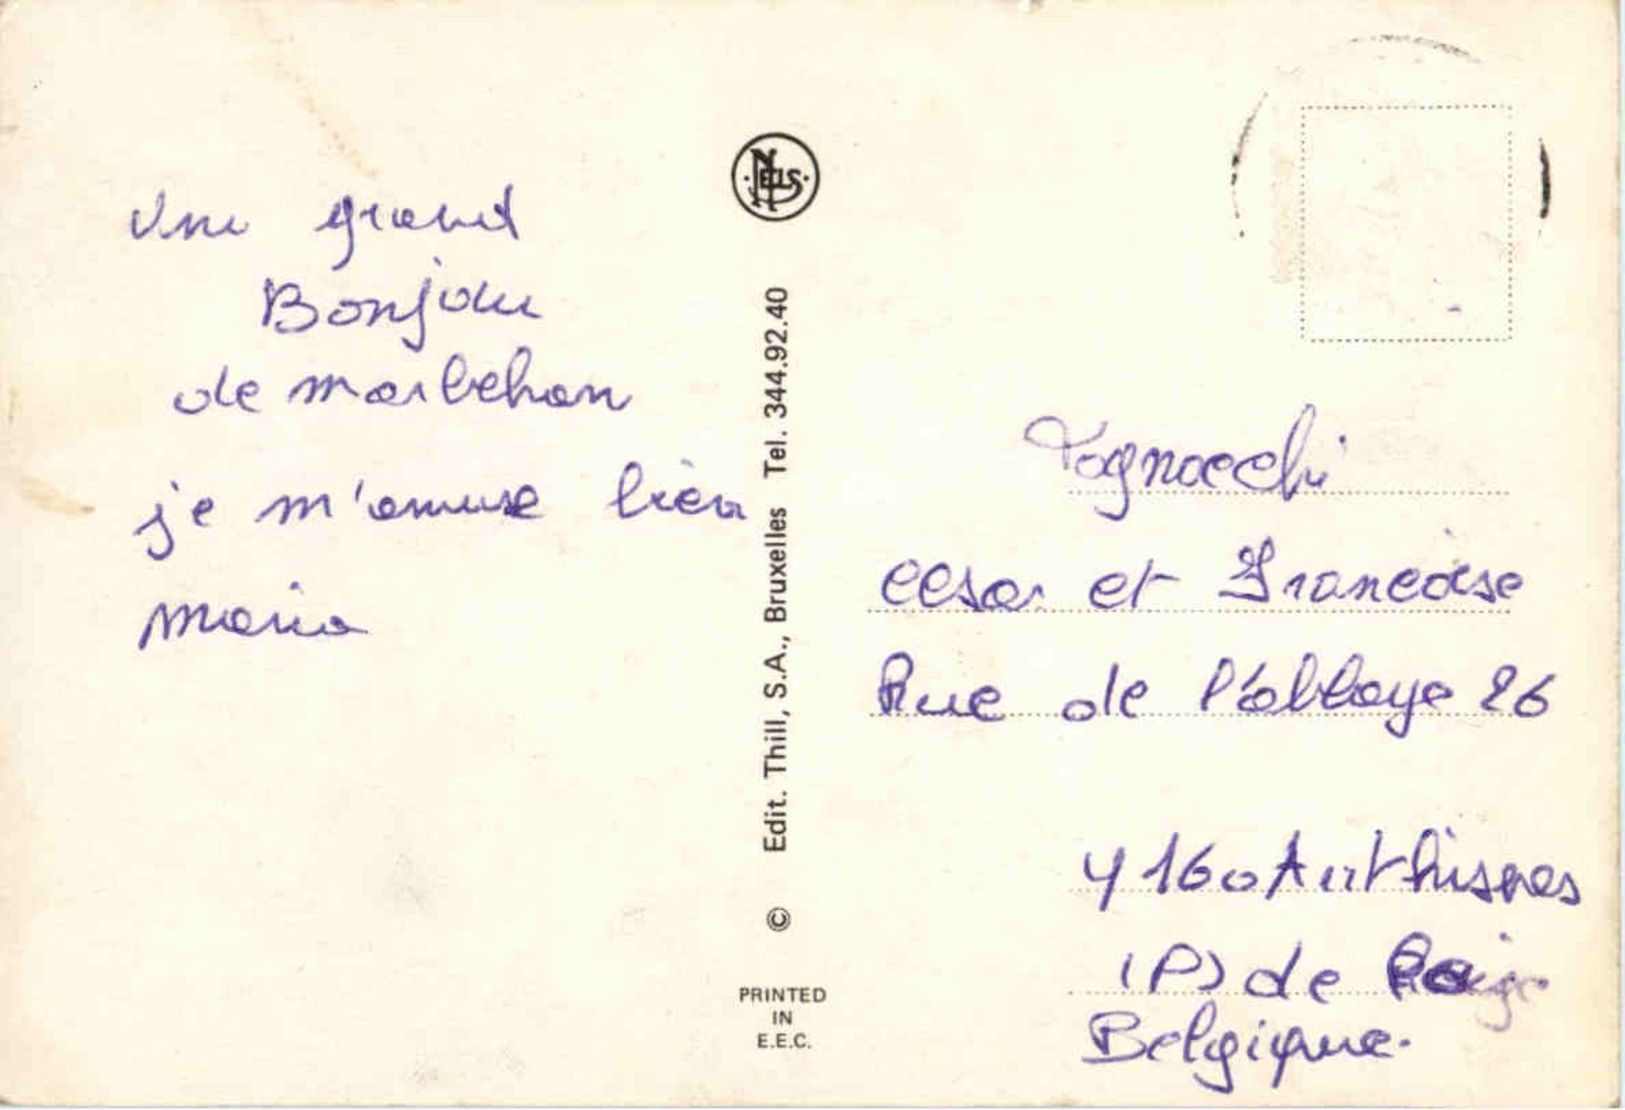 Une grand
Bonjou
de marbehan
je m'amuse bien
maria
NELS
© Edit. Thill, S.A., Bruxelles Tel. 344.92.40
PRINTED
IN
E.E.C.
Tognocchi
cesar et Francoise
Rue de l'abbaye 26
4160 Anthisnes
(P) de
Belgique.